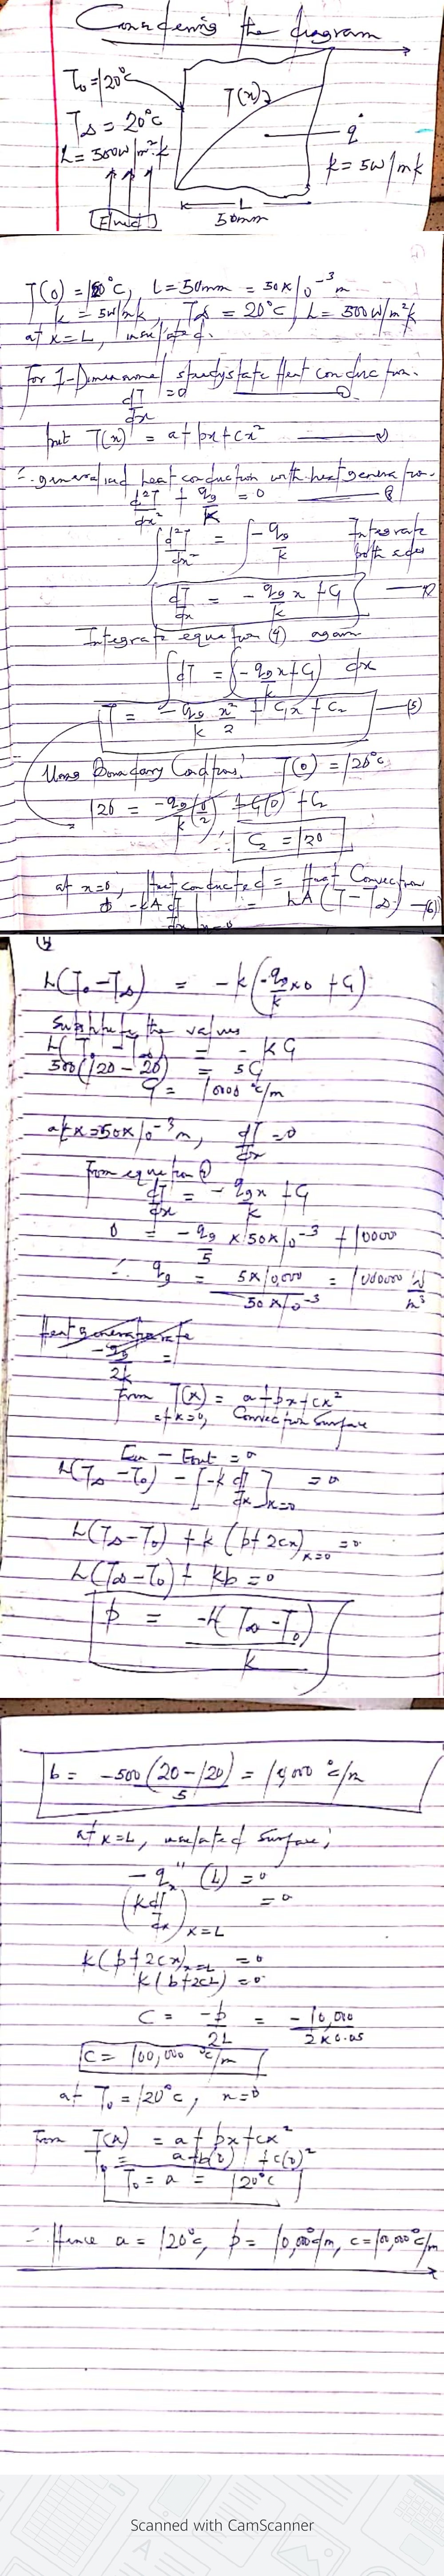 Considering the diagram
T₀ = 120°C
T∞ = 20°C
h = 500W/m².k
Fluid
T(x)
q̇
k = 5W/mk
L
50mm
T(0) = 120°C, L = 50mm = 50x10⁻³ m
k = 5W/mk, T∞ = 20°C, h = 500W/m²k
at x = L, insulated.
For 1-Dimensional steady state Heat conduction.
dT/dx = 0
put T(x) = a + bx + cx²
∴ generalized heat conduction with heat generation.
d²T/dx² + qg/k = 0
∫ d²T/dx² = ∫ -qg/k Integrate both sides
dT/dx = -qg x/k + C₁
Integrate equation (4) again
∫ dT = ∫(-qg x/k + C₁) dx
T = -qg/k x²/2 + C₁x + C₂ —(5)
Using Boundary Conditions: T(0) = 120°C
120 = -qg/k (0/2) + C₁(0) + C₂
∴ C₂ = 120
at x=0, Heat conducted = Heat Convection
-kA dT/dx |x=0 = hA (T - T∞) —(6)
h(T₀ - T∞) = -k(-qg/k x0 + C₁)
Substitute the values
= -kC₁
500(120 - 20) = 5C₁
C₁ = 10000 °C/m
at x = 50x10⁻³ m, dT/dx = 0
From equation
dT/dx = -qg x/k + C₁
0 = -qg/5 x 50x10⁻³ + 10000
∴ qg = 5x10,000/50x10⁻³ = 1000000 W/m³
Heat generation rate
-qg/2k =
From T(x) = a + bx + cx²
at x=0, Convection Surface
Ein - Eout = 0
h(T∞ - T₀) - [-k dT/dx]x=0 = 0
h(T∞ - T₀) + k (b + 2cx)x=0 = 0
h(T∞ - T₀) + kb = 0
b = -h(T∞ - T₀)/k
b = -500(20 - 120)/5 = 10,000 °C/m
at x = L, insulated surface;
-qx" (L) = 0
(k dT/dx)x=L = 0
k(b + 2cx)x=L = 0
k(b + 2cL) = 0
C = -b/2L = -10,000/2x0.05
C = 100,000 °C/m
at T₀ = 120°C, x = 0
From T(x) = a + bx + cx²
T₀ = a + b(0) + c(0)²
T₀ = a = 120°C
∴ Hence a = 120°C, b = 10,000°C/m, c = 100,000°C/m
Scanned with CamScanner